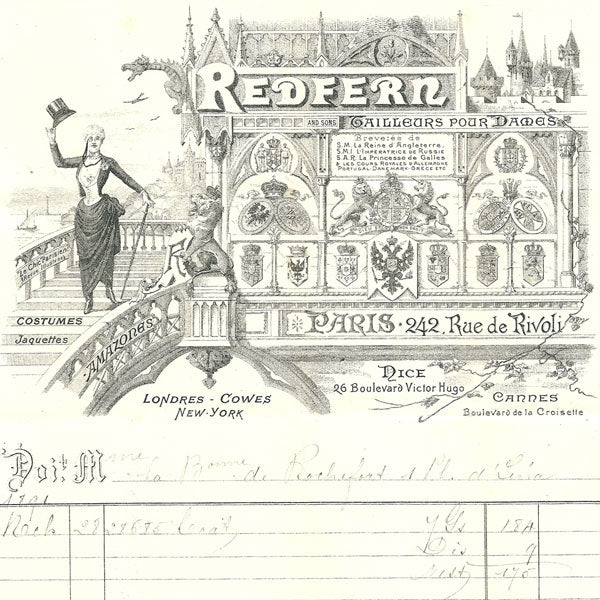 REDFERN
AND SONS TAILLEURS POUR DAMES
Brevetés de
S.M. La Reine d'Angleterre,
S.M.I. L'Imperatrice de Russie
S.A.R. La Princesse de Galles
& les Cours Royales d'Allemagne
Portugal Danemark-Grèce etc
COSTUMES
Jaquettes
AMAZONES
PARIS · 242, Rue de Rivoli
LONDRES - COWES
NEW-YORK
NICE
26 Boulevard Victor Hugo
CANNES
Boulevard de la Croisette
Doit Mme La Bonne de Rochefort 1 Pl. d'
1891
28 28685 184
Dis 9
175